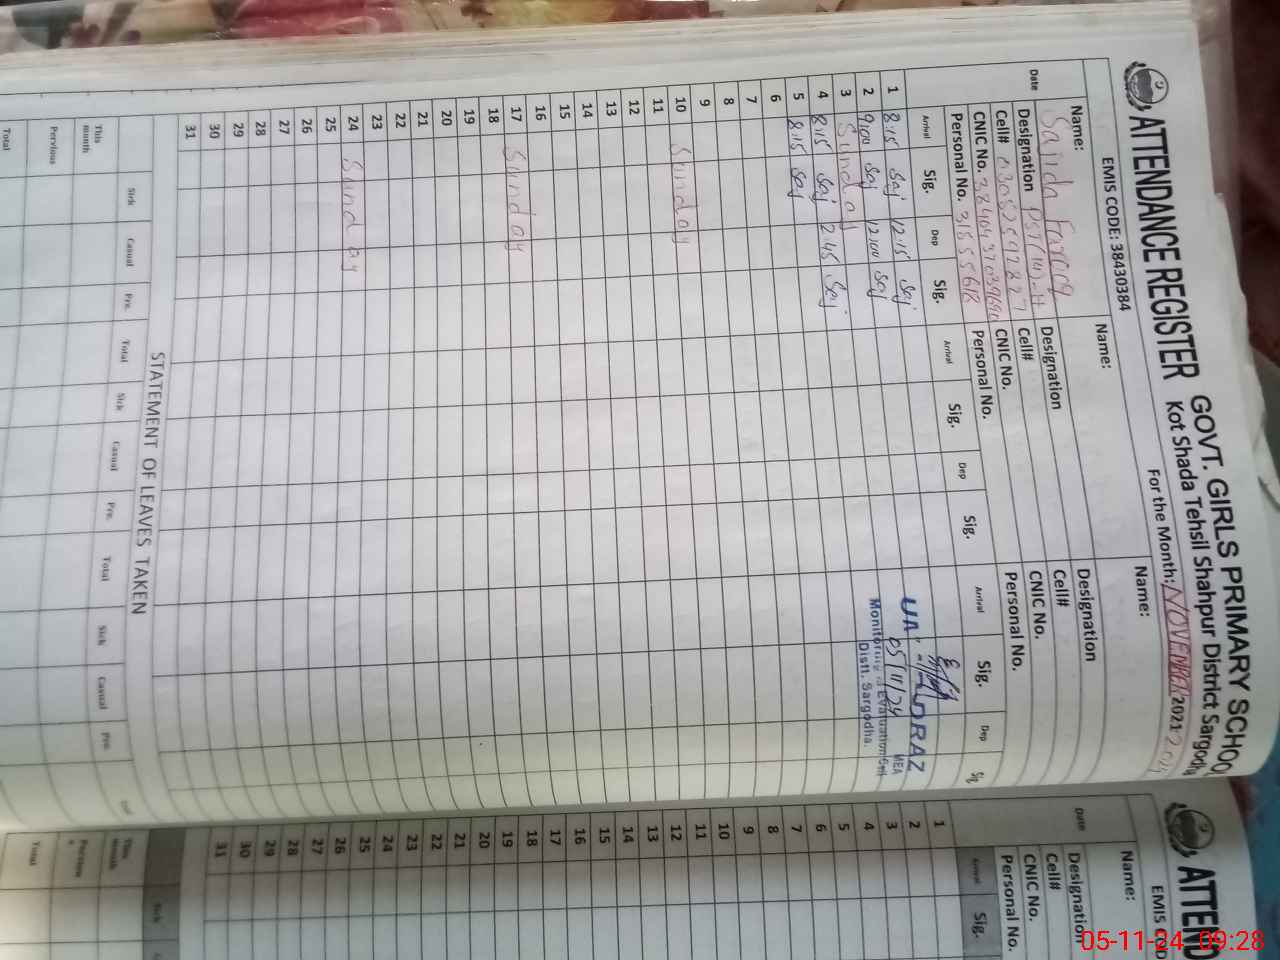 ATTENDANCE REGISTER
GOVT. GIRLS PRIMARY SCHOOL
Kot Shada Tehsil Shahpur District Sargodha
EMIS CODE: 38430384
For the Month: NOVEMBER 2021 2024
Name: Sajida Farooq
Designation PST(14)-H
Cell#
CNIC No.
Personal No.
Name:
Designation
Cell#
CNIC No.
Personal No.
Name:
Designation
Cell#
CNIC No.
Personal No.
Date Arrival Sig. Dep Sig. Arrival Sig. Dep Sig. Arrival Sig. Dep Sig
1 8:15 Saj 12:15 Saj
2 9:00 Saj 12:00 Saj
3 Sunday
4 8:15 Saj 2:45 Saj
5 8:15 Saj
6
7
8
9
10 Sunday
11
12
13
14
15
16
17 Sunday
18
19
20
21
22
23
24 Sunday
25
26
27
28
29
30
31
05/11/24
MEA
Monitoring & Evaluation Cell
Distt. Sargodha.
STATEMENT OF LEAVES TAKEN
Sick Casual Pre. Total Sick Casual Pre. Total Sick Casual Pre.
This month
Pervious
Total
ATTEND
EMIS COD
Name:
Designation
Cell#
CNIC No.
Personal No.
Date Arrival Sig.
1
2
3
4
5
6
7
8
9
10
11
12
13
14
15
16
17
18
19
20
21
22
23
24
25
26
27
28
29
30
31
Sick
This month
Perviou
Total
05-11-24 09:28